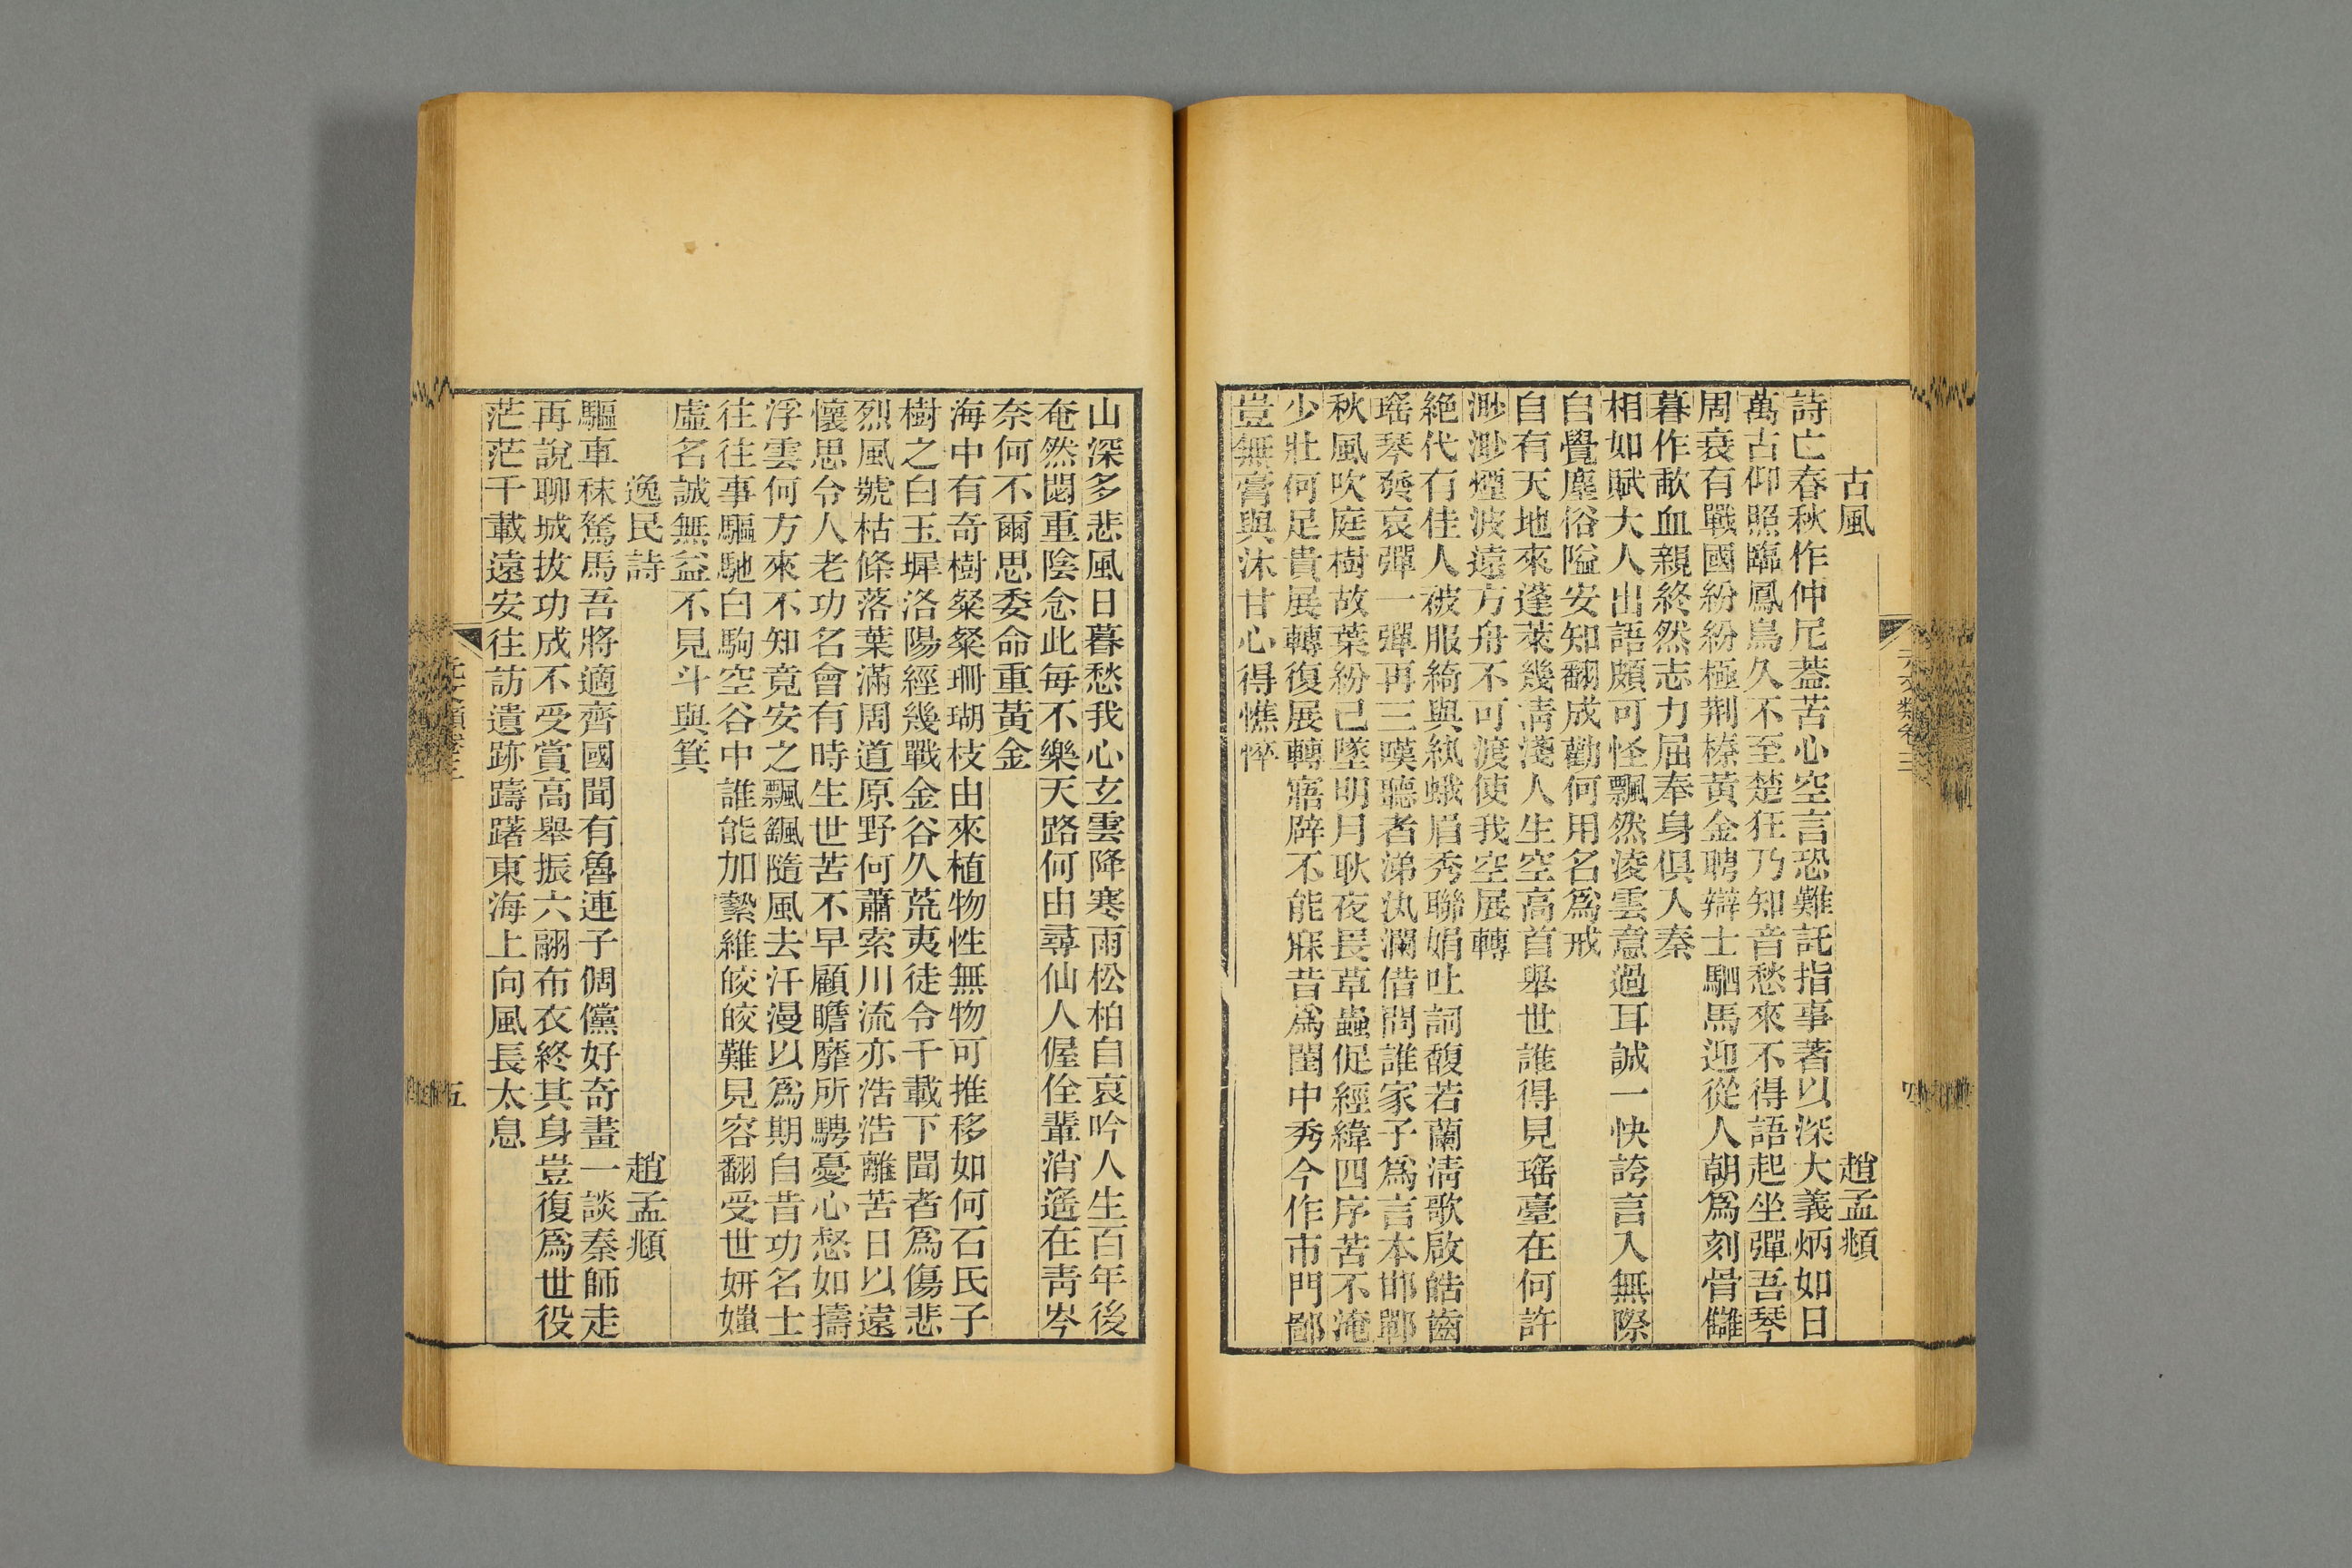 古風　趙孟頫
詩亡春秋作仲尼葢苦心空言恐難託指事著以深大義炳如日
萬古仰照臨鳳鳥久不至楚狂乃知音愁來不得語起坐彈吾琴
周衰有戰國紛紛極荆榛黃金聘辯士駟馬迎從人朝爲刻骨讎
暮作歃血親終然志力屈奉身俱入秦
相如賦大人出語頗可怪飄然淩雲意過耳誠一快誇言入無際
自覺塵俗隘安知翻成勸何用名爲戒
自有天地來蓬萊幾淸淺人生空高首舉世誰得見瑤臺在何許
渺渺煙波遠方舟不可渡使我空展轉
絶代有佳人被服綺與紈蛾眉秀聯娟吐詞馥若蘭淸歌啟皓齒
瑤琴發哀彈一彈再三嘆聽者涕汍瀾借問誰家子爲言本邯鄲
秋風吹庭樹故葉紛已墜明月耿夜長草蟲促經緯四序苦不淹
少壯何足貴展轉復展轉寤辟不能寐昔爲閨中秀今作市門鄙
豈無膏與沐甘心得憔悴
元文類卷三
四
山深多悲風日暮愁我心玄雲降寒雨松柏自哀吟人生百年後
奄然閟重陰念此每不樂天路何由尋仙人偓佺輩消遙在靑岑
奈何不爾思委命重黃金
海中有奇樹粲粲珊瑚枝由來植物性無物可推移如何石氏子
樹之白玉墀洛陽經幾戰金谷久荒夷徒令千載下聞者爲傷悲
烈風號枯條落葉滿周道原野何蕭索川流亦浩浩離苦日以遠
懷思令人老功名會有時生世苦不早顧瞻靡所騁憂心惄如擣
浮雲何方來不知竟安之飄飄隨風去汗漫以爲期自昔功名士
往往事驅馳白駒空谷中誰能加縶維皎皎難見容翻受世姸媸
虛名誠無益不見斗與箕
逸民詩　趙孟頫
驅車秣駑馬吾將適齊國聞有魯連子倜儻好奇畫一談秦師走
再說聊城拔功成不受賞高舉振六翮布衣終其身豈復爲世役
茫茫千載遠安往訪遺跡躊躇東海上向風長太息
元文類卷三
五